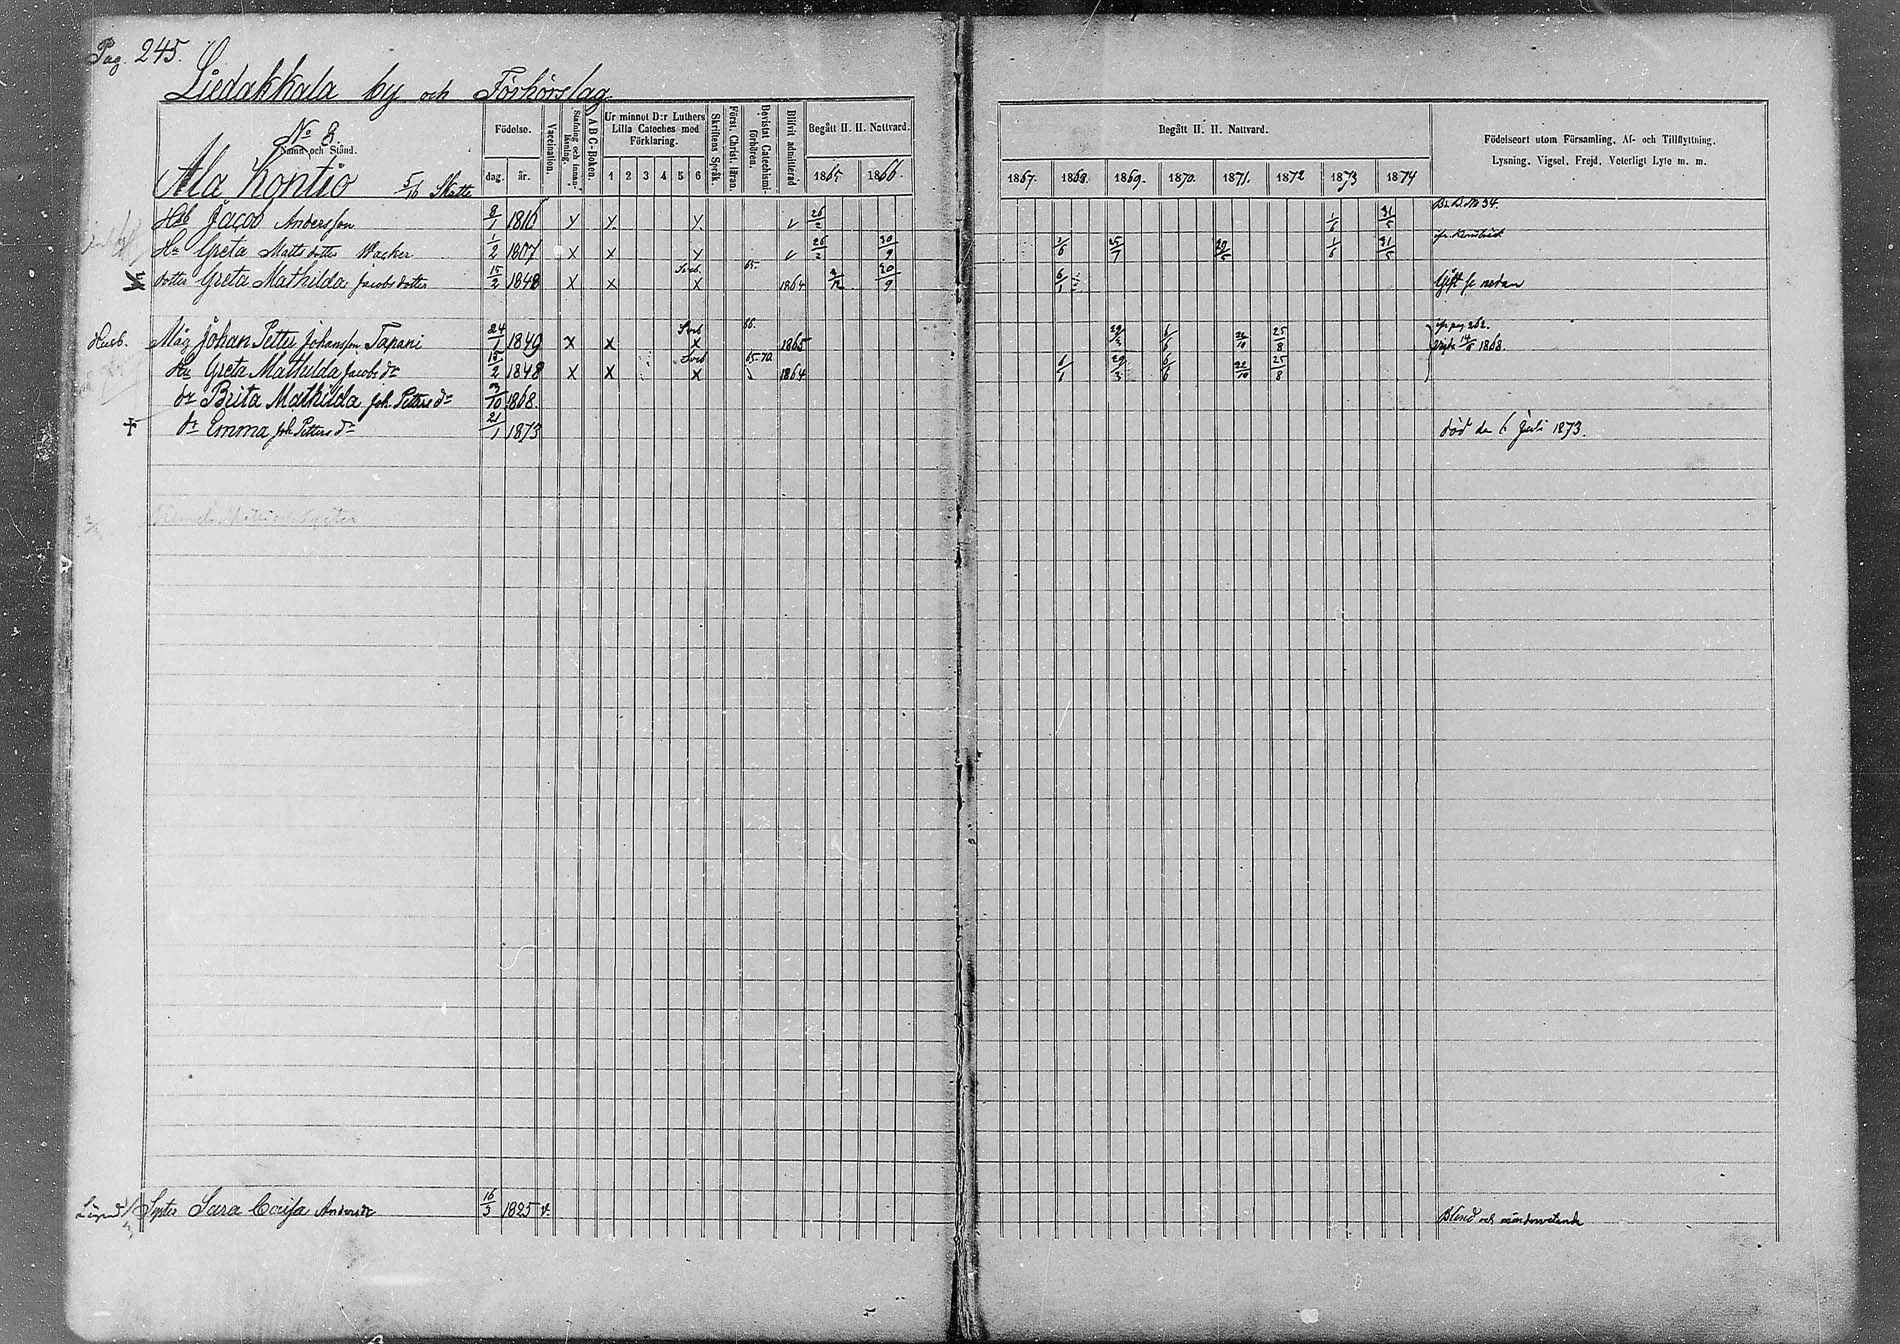 Pag. 245.
Liedakkala by och Förhörslag
No 8.
Namn och Stånd.
Ala Kontio 5/16 Skatte
Födelse.
dag. år.
Vaccination.
Stafning och innanläsning.
A B C-Boken.
Ur minnet D:r Luthers Lilla Cateches med Förklaring.
1 2 3 4 5 6
Skriftens Språk.
Först. Christ. läran.
Bevistat Catechismiförhören.
Blifvit admitterad
Begått H. H. Nattvard.
1865. 1866.
Begått H. H. Nattvard.
1867. 1868. 1869. 1870. 1871. 1872 1873 1874
Födelseort utom Församling, Af- och Tillflyttning,
Lysning, Vigsel, Frejd, Veterligt Lyte m. m.
Jacob Andersson 8/1 1816 x x x v 26/2 1/6 31/5
Hu Greta Matts dotter Wacker 1/2 1807 x x x v 26/2 30/9 1/6 25/7 29/5 1/6 31/5
dotter Greta Mathilda Jacobsdotter 15/2 1848 x x x 65. 1864 30/9 6/1 Gift se nedan
Husb. Måg Johan Petter Johansson Tapani 24/1 1849 x x x 66. 1865 6/6 22/10 25/8 pag 262.
14/6 1868.
Hu Greta Mathilda Jacobs dr 15/2 1848 x x x 65 70 1864 6/1 6/6 22/10 25/8
dr Brita Mathilda Joh. Petters dr 3/10 1868.
† dr Emma Joh. Petters dr 21/1 1873 död den 6 Juli 1873.
Syster Sara Caisa Andersdr 16/5 1825 v. Blind och